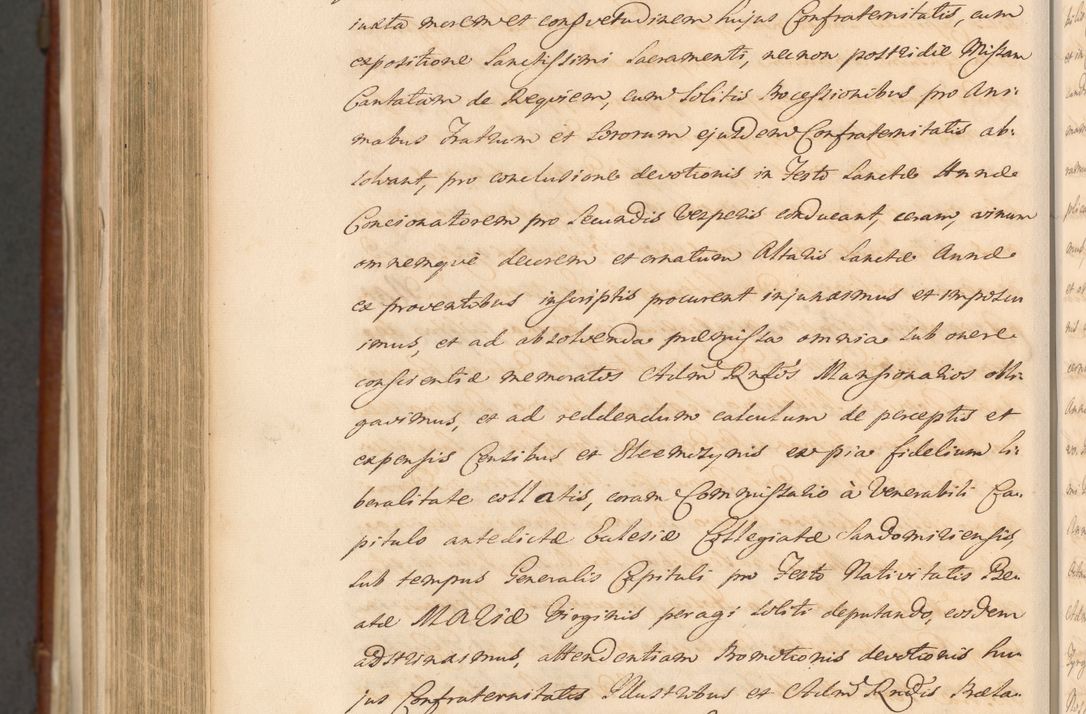 iuxta morem et consvetudinem hujus Confraternitatis, cum
expositione Sanctissimi Sacramenti, necnon postridie Missam
Cantatam de Requiem, cum solitis Processionibus pro Ani:
mabus Fratrum et Sororum ejusdem Confraternitatis ab:
solvant, pro conclusione devotionis in Festo Sanctæ Annæ
Concionatorem pro secundis Vesperis conducant, ceram, vinum
omnemque decorem et ornatum Altaris Sanctæ Annæ
ex proventibus inscriptis procurent injunximus et imposu
imus, et ad absolvenda præmissa omnia sub onere
conscientiæ memoratos Adm Rndos Mansionarios obli:
gavimus, et ad reddendum calculum de perceptis et
expensis Censibus et Eleemosynis ex pia fidelium li:
beralitate collatis, coram Commissario à Venerabili Ca:
pitulo antedictæ Eclesiæ Collegiatæ Sandomiriensis,
sub tempus Generalis Capituli pro Festo Nativitatis Be:
atæ MARIÆ Virginis peragi soliti deputando, eosdem
adstrinximus, attendentiam Promotionis devotionis hu:
jus Confraternitatis Illustribus et Adm Rndis Præla: